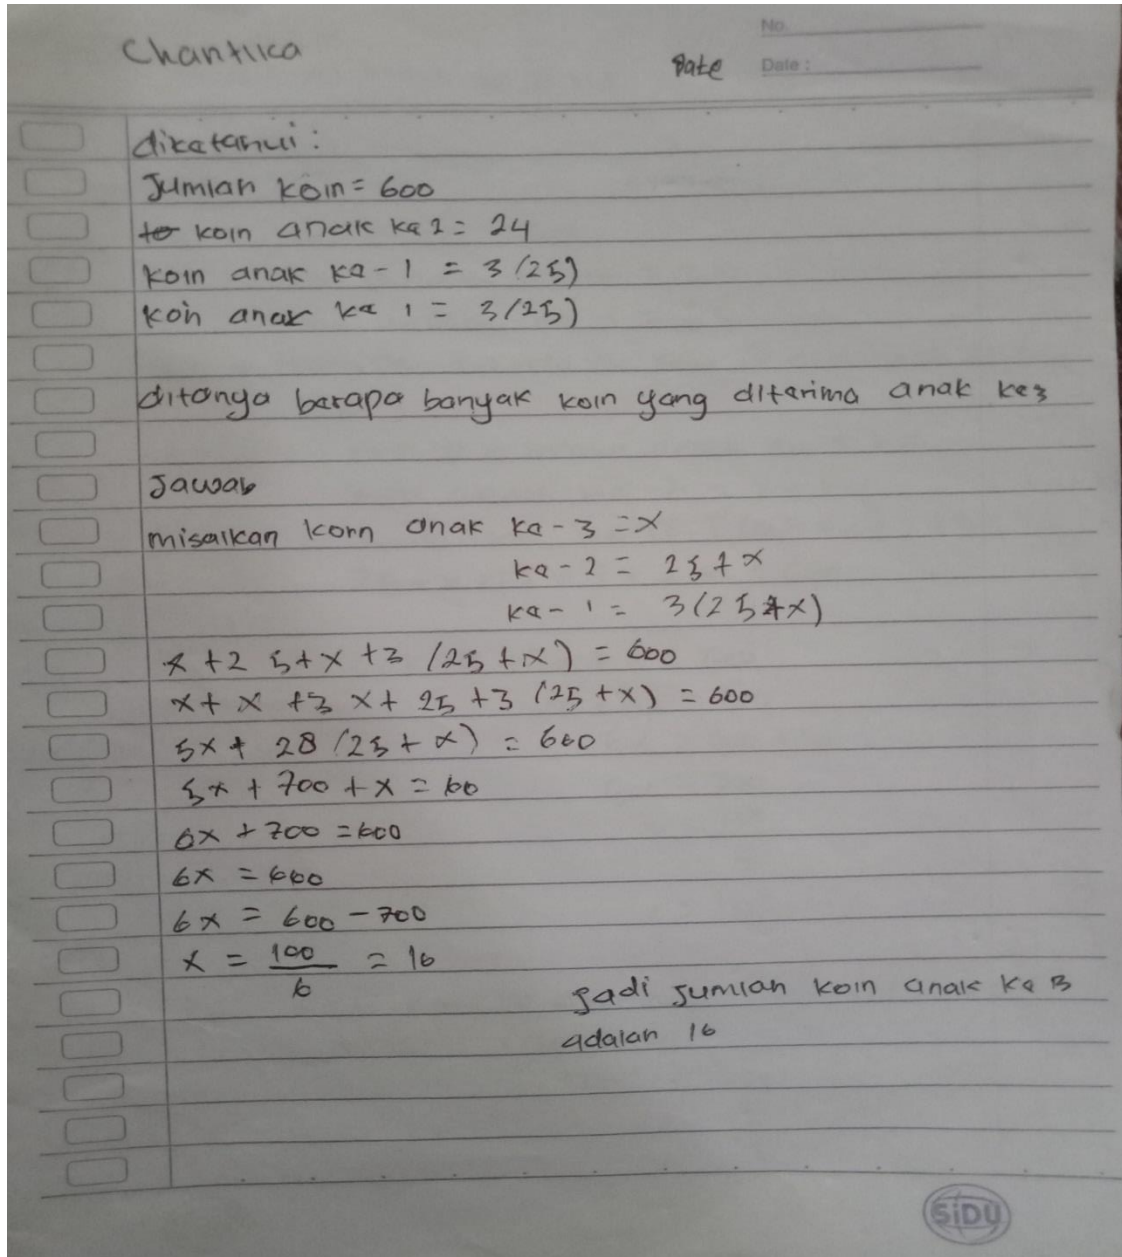 Chantika
No.
Date Date :
diketahui :
Jumlah koin = 600
koin anak ke 2 = 24
koin anak ke - 1 = 3 (25)
koin anak ke 1 = 3 (25)
ditanya berapa banyak koin yang diterima anak ke3
Jawab
misalkan koin anak ke - 3 = x
ke - 2 = 25 + x
ke - 1 = 3 (25 + x)
x + 2 5 + x + 3 (25 + x) = 600
x + x + 3 x + 25 + 3 (25 + x) = 600
5x + 28 (25 + x) = 600
5x + 700 + x = 60
6x + 700 = 600
6x = 600
6x = 600 - 700
x = 100/6 = 16
Jadi jumlah koin anak ke 3
adalah 16
SiDU